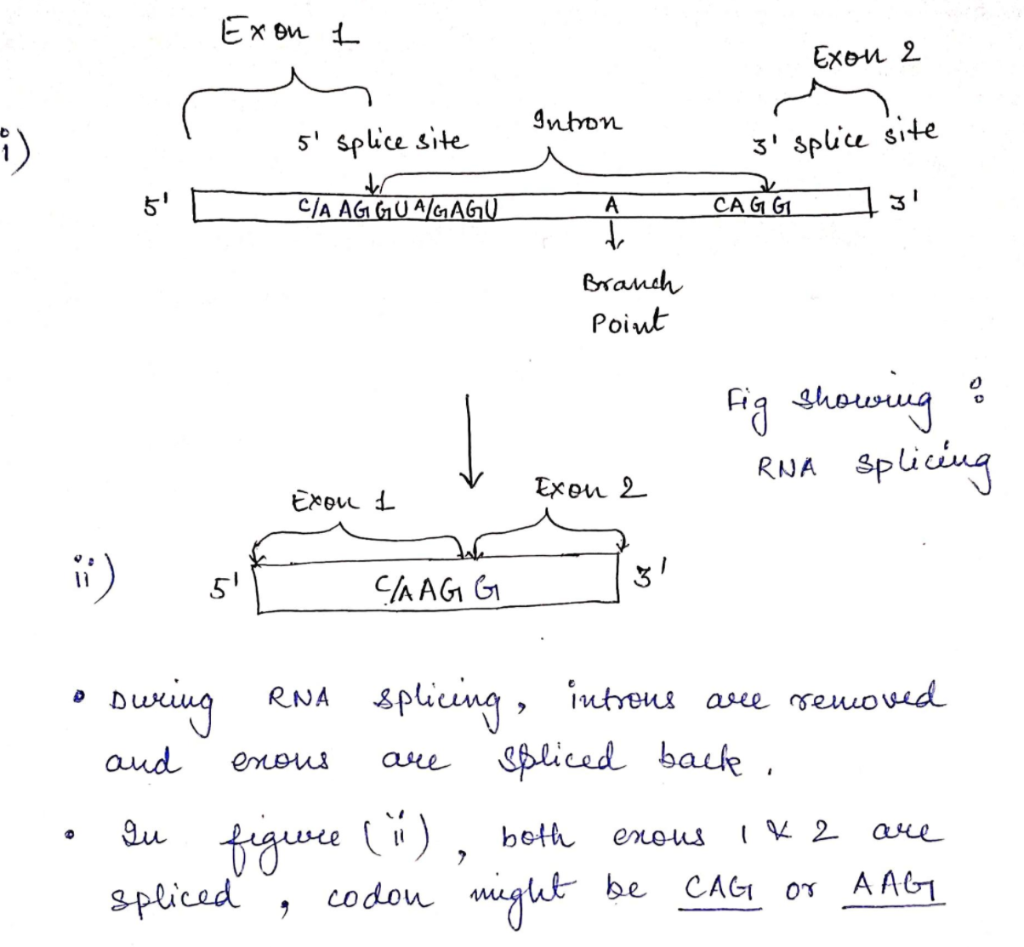 Exon 1
Exon 2
i)
5' splice site
Intron
3' splice site
5' C/A AG GU A/G AGU A CAG G 3'
Branch
Point
Fig showing :
RNA splicing
Exon 1
Exon 2
ii)
5' C/A AG G 3'
• During RNA splicing, introns are removed
and exons are spliced back.
• In figure (ii), both exons 1 & 2 are
spliced, codon might be CAG or AAG